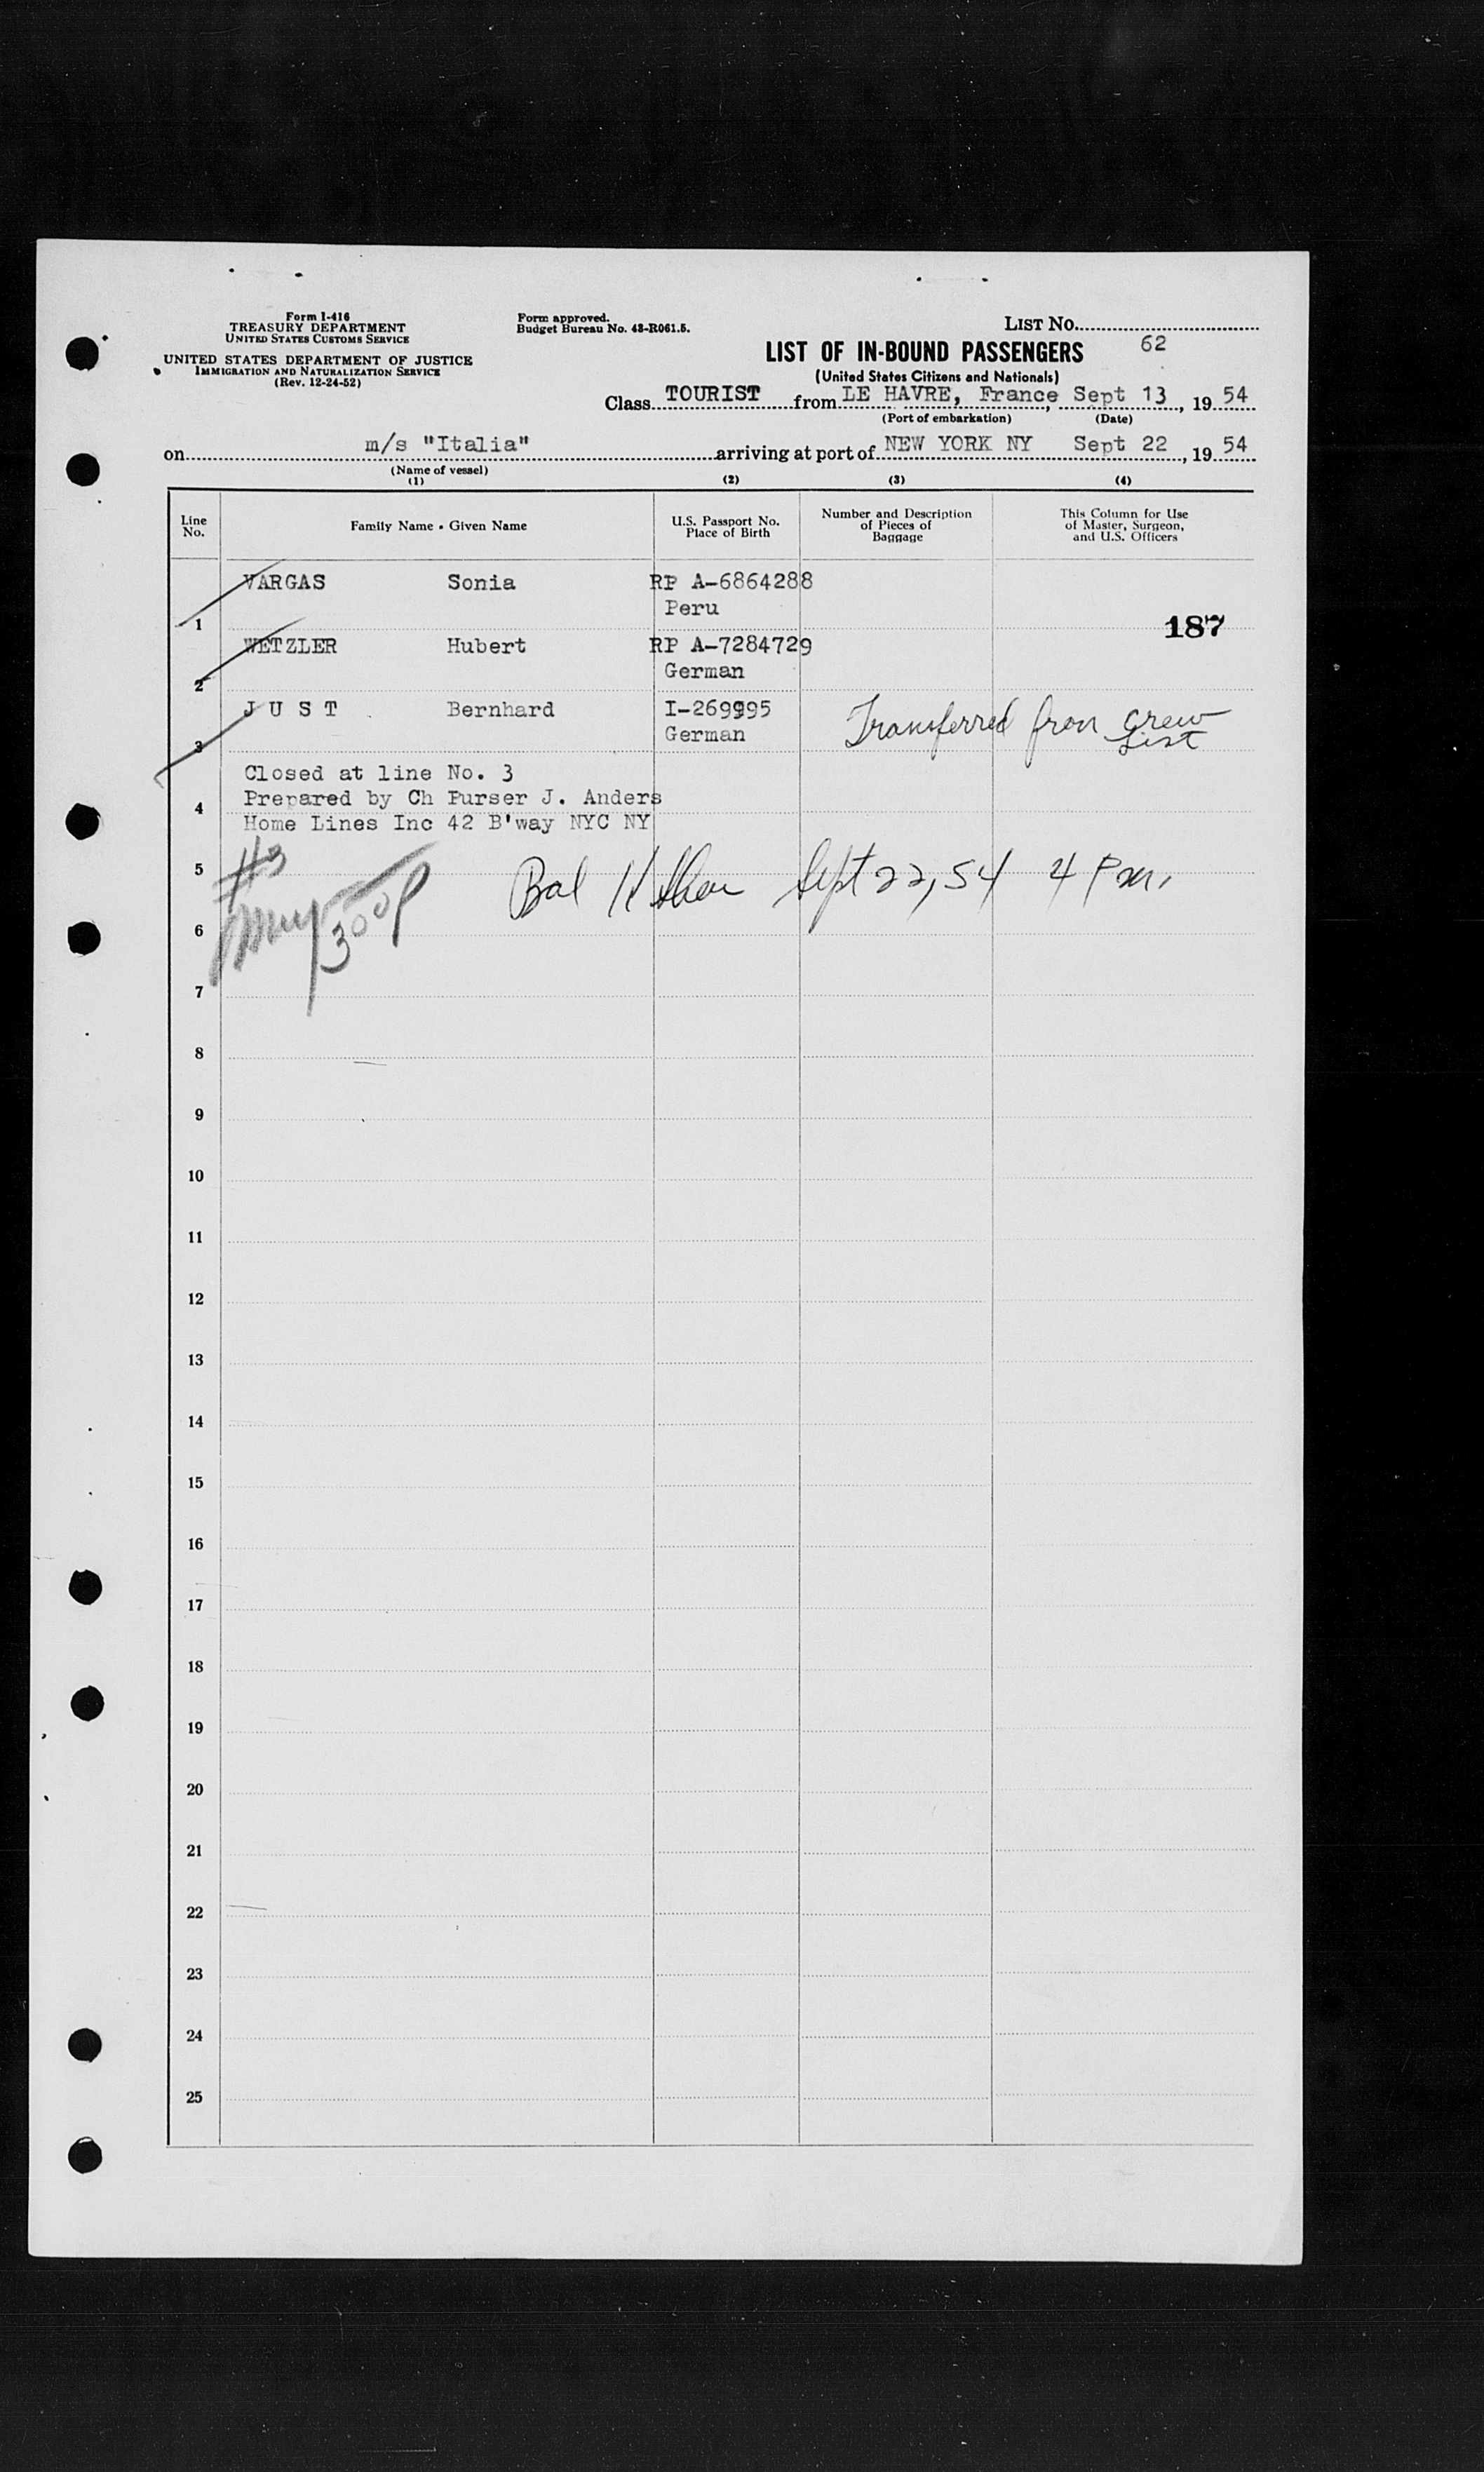 Form I-416
TREASURY DEPARTMENT
UNITED STATES CUSTOMS SERVICE
UNITED STATES DEPARTMENT OF JUSTICE
IMMIGRATION AND NATURALIZATION SERVICE
(Rev. 12-24-52)
Form approved.
Budget Bureau No. 43-R061.5.
LIST No.
62
LIST OF IN-BOUND PASSENGERS
(United States Citizens and Nationals)
Class TOURIST from LE HAVRE, France, Sept 13, 19 54
(Port of embarkation) (Date)
on m/s "Italia" arriving at port of NEW YORK NY Sept 22, 19 54
(Name of vessel)
(1) (2) (3) (4)
Line No. Family Name - Given Name U.S. Passport No. Place of Birth Number and Description of Pieces of Baggage This Column for Use of Master, Surgeon, and U.S. Officers
VARGAS Sonia RP A-6864288
1 Peru 187
WETZLER Hubert RP A-7284729
2 German
J U S T Bernhard I-269995
3 German Transferred from crew list
Closed at line No. 3
4 Prepared by Ch Purser J. Anders
Home Lines Inc 42 B'way NYC NY
5 #3 Sept 22, 54 4 Pm.
6
7
8
9
10
11
12
13
14
15
16
17
18
19
20
21
22
23
24
25